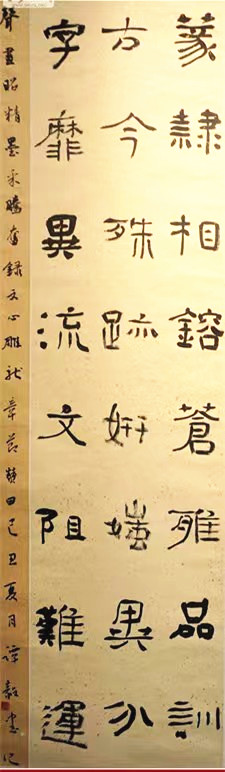 篆隸相鎔蒼雅品訓
古今殊跡妍媸異分
字靡異流文阻難運
聲畫昭精墨采騰奮錄文心雕龍章節贊曰己丑夏月